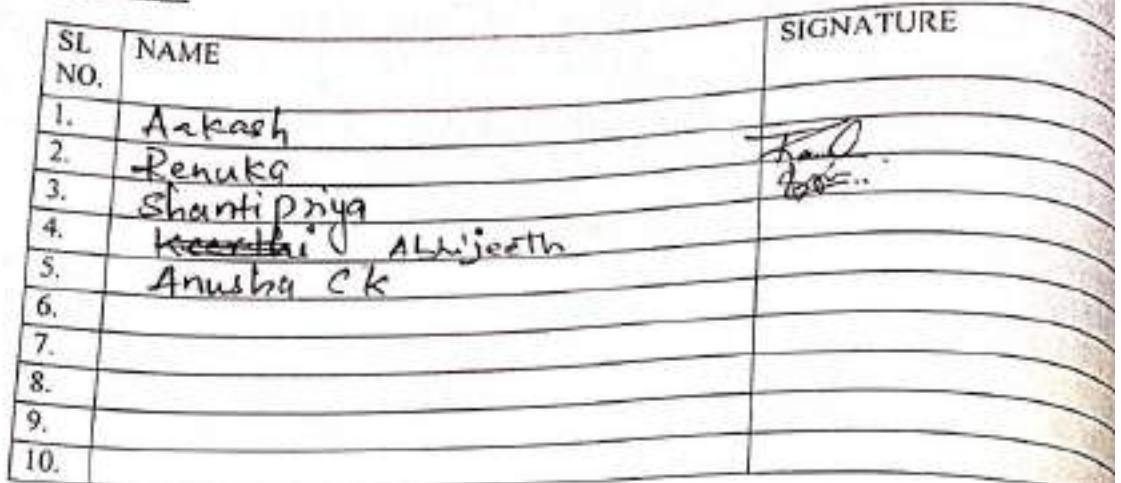 SL NO. NAME SIGNATURE
1. Aakash
2. Renuka
3. Shantipriya
4. Keerthi Abhijeeth
5. Anusha CK
6.
7.
8.
9.
10.